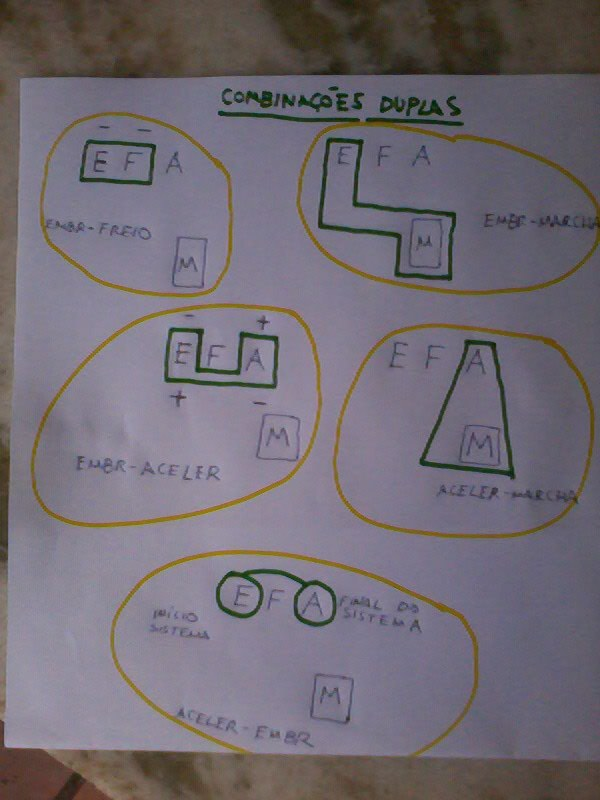 COMBINAÇÕES DUPLAS
− −
E F A
EMBR-FREIO
M
E F A
EMBR-MARCHA
M
− +
E F A
+ −
M
EMBR-ACELER
E F A
M
ACELER-MARCHA
E F A
INÍCIO
SISTEMA
FINAL DO
SISTEMA
M
ACELER-EMBR